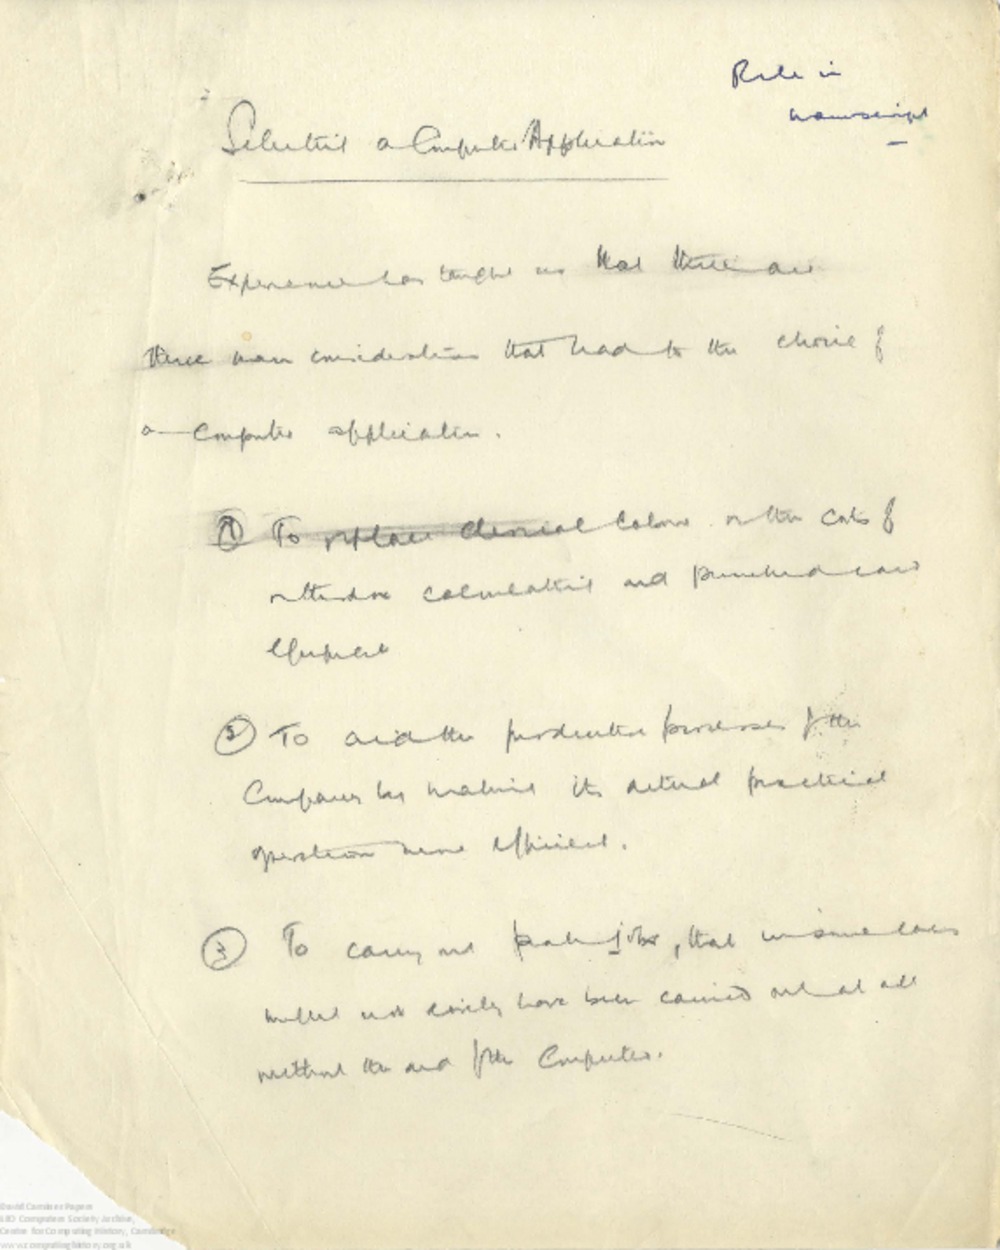 in
manuscript
Selecting a Computer Application
Experience has taught us that there are
three main considerations that lead to the choice of
a computer application.
① To replace clerical labour or the cost of
calculating and punched card
equipment
② To aid the production processes of the
Company by making its actual practical
operation more efficient.
③ To carry out jobs, that in some cases
could not easily have been carried out at all
without the aid of the Computer.
David Caminer Papers
LEO Computers Society Archive,
Centre for Computing History, Cambridge
www.computinghistory.org.uk